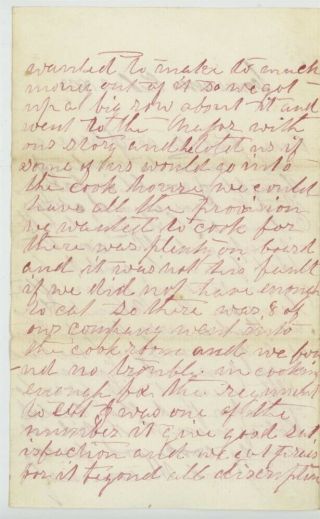 wanted to make to much
money out of it so we got
up a big row about it and
went to the Major with
our story and he told us if
some of us would go into
the cook house we could
have all the provision
we wanted to cook for
there was plenty on board
and it was not his fault
if we did not have enough
to eat so there was 8 of
our company went into
the cook room and we fou
nd no trouble in cooking
enough for the regiment
to eat I was one of the
number it give good sat
isfaction and we got prais
for it beyond all discription